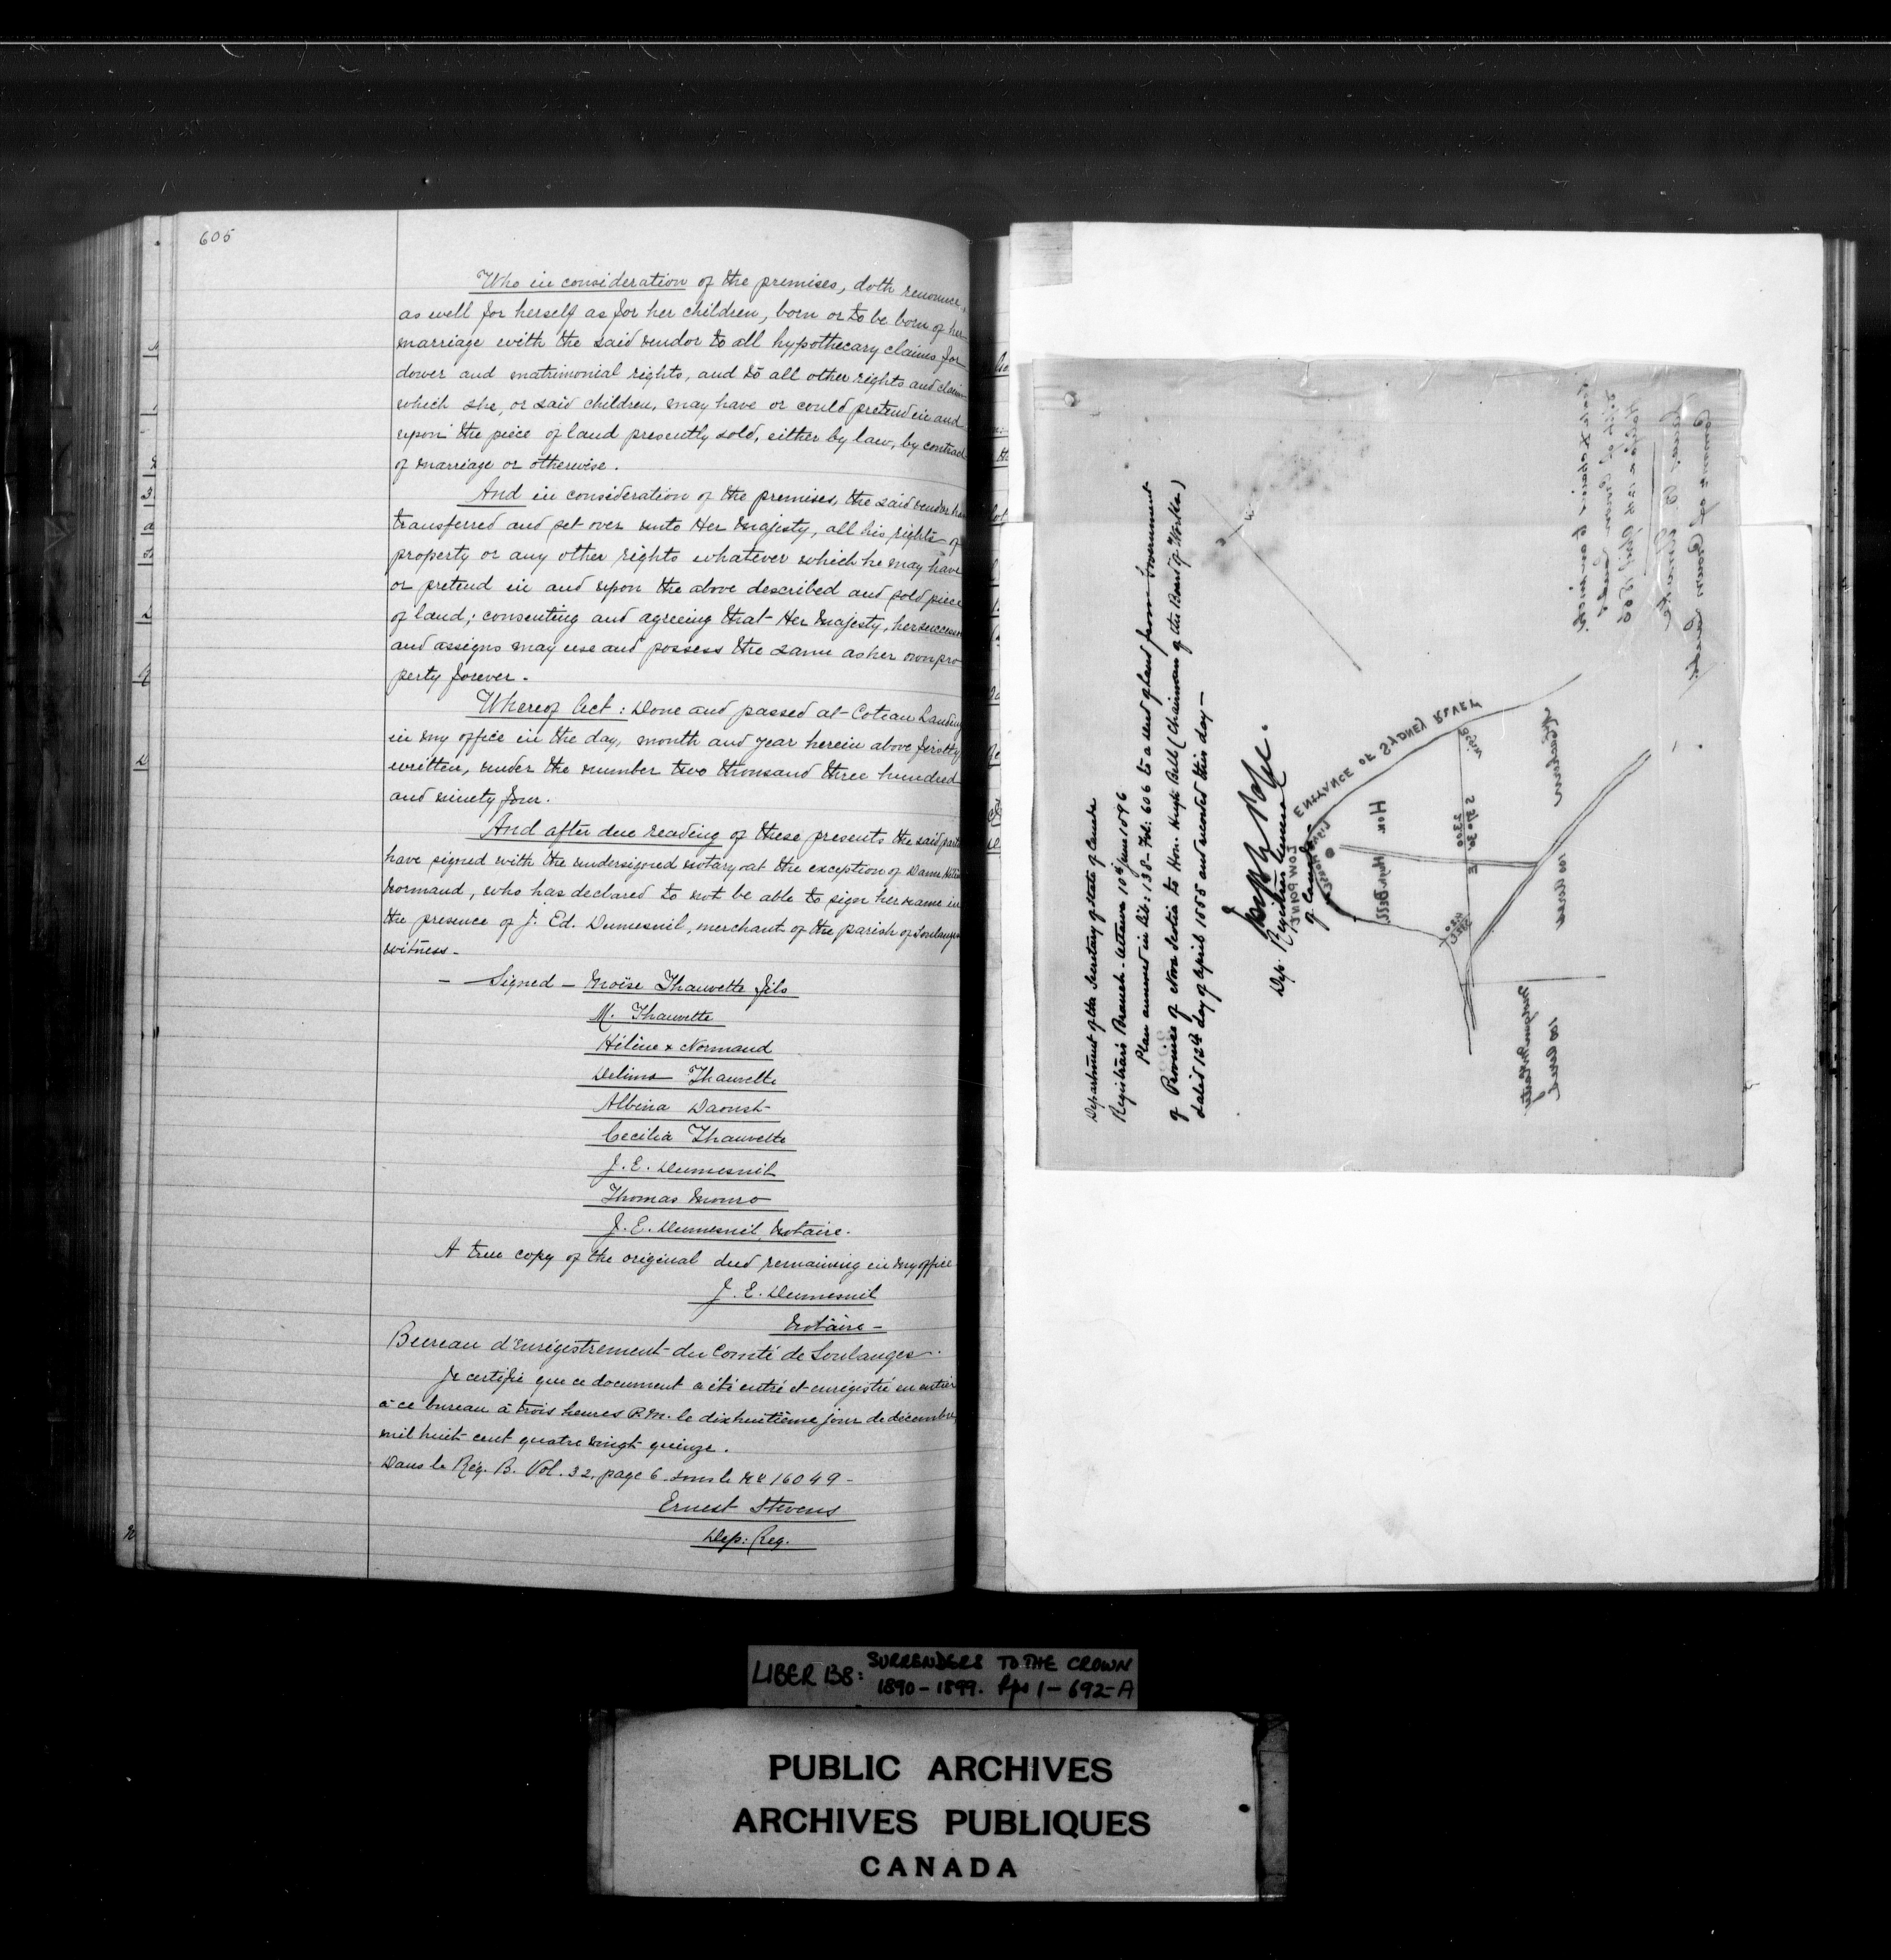 605
Who in consideration of the premises, doth renounce,
as well for herself as for her children, born or to be born of her
marriage with the said vendor to all hypothecary claims for
dower and matrimonial rights, and to all other rights and claims
which she, or said children, may have or could pretend in and
upon the piece of land presently sold, either by law, by contract
of marriage or otherwise.
And in consideration of the premises, the said vendor has
transferred and set over unto Her Majesty, all his rights of
property or any other rights whatever which he may have
or pretend in and upon the above described and sold piece
of land; consenting and agreeing that Her Majesty, her successors
and assigns may use and possess the same as her own pro
perty forever.
Whereof Act: Done and passed at Coteau Landing
in my office in the day, month and year herein above firstly
written, under the number two thousand three hundred
and ninety four.
And after due reading of these presents the said parties
have signed with the undersigned notary at the exception of Dame Hélène
Normand, who has declared to not be able to sign her name in
the presence of J. Ed. Dumesnil, merchant of the parish of Soulanges
witness -
- Signed - Moïse Thauvette fils
M. Thauvette
Hélène x Normand
Delima Thauvette
Albina Daoust
Cecilia Thauvette
J. E. Dumesnil
Thomas Monro
J. E. Dumesnil, Notaire.
A true copy of the original deed remaining in my office
J. E. Dumesnil
Notaire -
Bureau d'Enrégistrement du Comté de Soulanges.
Je certifie que ce document a été entré et enrégistré en entier
à ce bureau à trois heures P.M. le dixhuitième jour de décembre,
mil huit cent quatre vingt quinze.
Dans le Rég. B. Vol. 32, page 6 sous le No 16049 -
Ernest Stevens
Dep: Reg.
Department of the Secretary of State of Canada
Registrar's Branch. Ottawa 10th June 1896
Plan annexed in Lib: 138 - Fol: 606 to a deed of land from Government
of Province of Nova Scotia to Hon. Hugh Bell (Chairman of the Board of Works)
dated 12th day of April 1855 and recorded this day -
Joseph Pope.
Dep. Registrar General
of Canada
ENTRANCE OF SYDNEY RIVER
Light House
LOW POINT
Hon Hugh Bell
100 Acres
100 Acres
Commr of Crown Lands
Halifax 12th April 1855
LIBER 138: SURRENDERS TO THE CROWN
1890-1899. Pps 1-692-A
PUBLIC ARCHIVES
ARCHIVES PUBLIQUES
CANADA